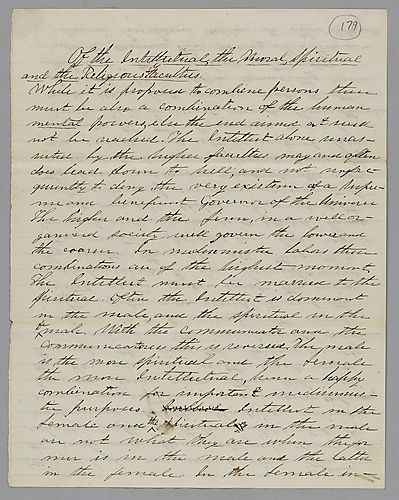 179
Of the Intellectual, the Moral, Spiritual
and the Religious Faculties.
While it is proposed to combine persons there
must be also a combination of the human
mental powers, else the end aimed at will
not be reached. The Intellect alone unas-
sisted by the higher faculties may and often
does lead down to hell, and not unfre-
quently to deny the very existence of a Supre-
me and beneficent Governor of the Universe
The higher and the finer, in a well or-
ganised society will govern the lower and
the coarser. In mediumistic labors these
combinations are of the highest moment,
The Intellect must be married to the
spiritual. Often the Intellect is dominant
in the male, and the spiritual in the
female. With the communicator and the
communicatress this is reversed. The male
is the more spiritual and the female
the more Intellectual, hence a happy
combination for important mediumis-
tic purposes. Intellect in the
female and the spiritual in the male
are not what they are when the for
mer is in the male and the latter
in the female. In the female in-